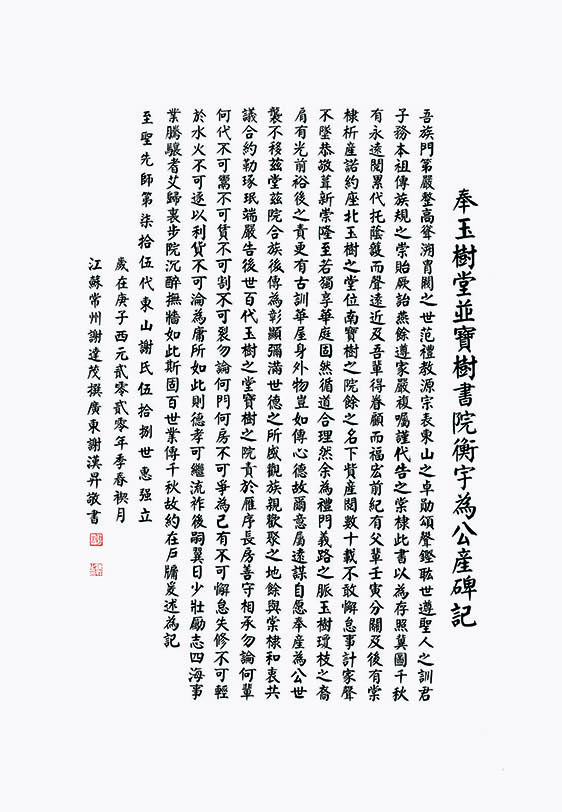 奉玉樹堂並寶樹書院衡宇為公産碑記
吾族門第嚴整高聳溯胃閥之世范禮教源宗表東山之卓勛頌聲鏗耾世遵聖人之訓君
子務本祖傳族規之棠貽厥詒燕餘遵家嚴複囑謹代告之棠棣此書以為存照冀圖千秋
有永遠閱累代托蔭護而聲遠近及吾輩得眷顧而福宏前紀有父輩壬寅分關及後有棠
棣析産諾約座北玉樹之堂位南寶樹之院餘之名下貲産閱數十載不敢懈怠事計家聲
不墜恭敬葺新崇隆至若獨享華庭固然循道合理然余為禮門義路之脈玉樹瓊枝之裔
肩有光前裕後之責更有古訓華屋身外物豈如傳心德故爾意屬遠謀自愿奉産為公世
襲不移茲堂茲院合族後傳為彰顯彌滿世德之所盛觀族親歡聚之地餘與棠棣和衷共
議合約勒琢珉端嚴告後世百代玉樹之堂寶樹之院責於雁序長房善守相承勿論何輩
何代不可鬻不可賃不可割不可裂勿論何門何房不可爭為己有不可懈怠失修不可輕
於水火不可逐以利貨不可淪為庸所如此則德孝可繼流祚後嗣翼日少壯勵志四海事
業騰驤者艾歸裏步院沉醉撫牆如此斯固百世業傳千秋故約在戶牖爰述為記
至聖先師第柒拾伍代東山謝氏伍拾捌世惠强立
歲在庚子西元貳零貳零年季春禊月
江蘇常州謝達茂撰廣東謝漢昇敬書